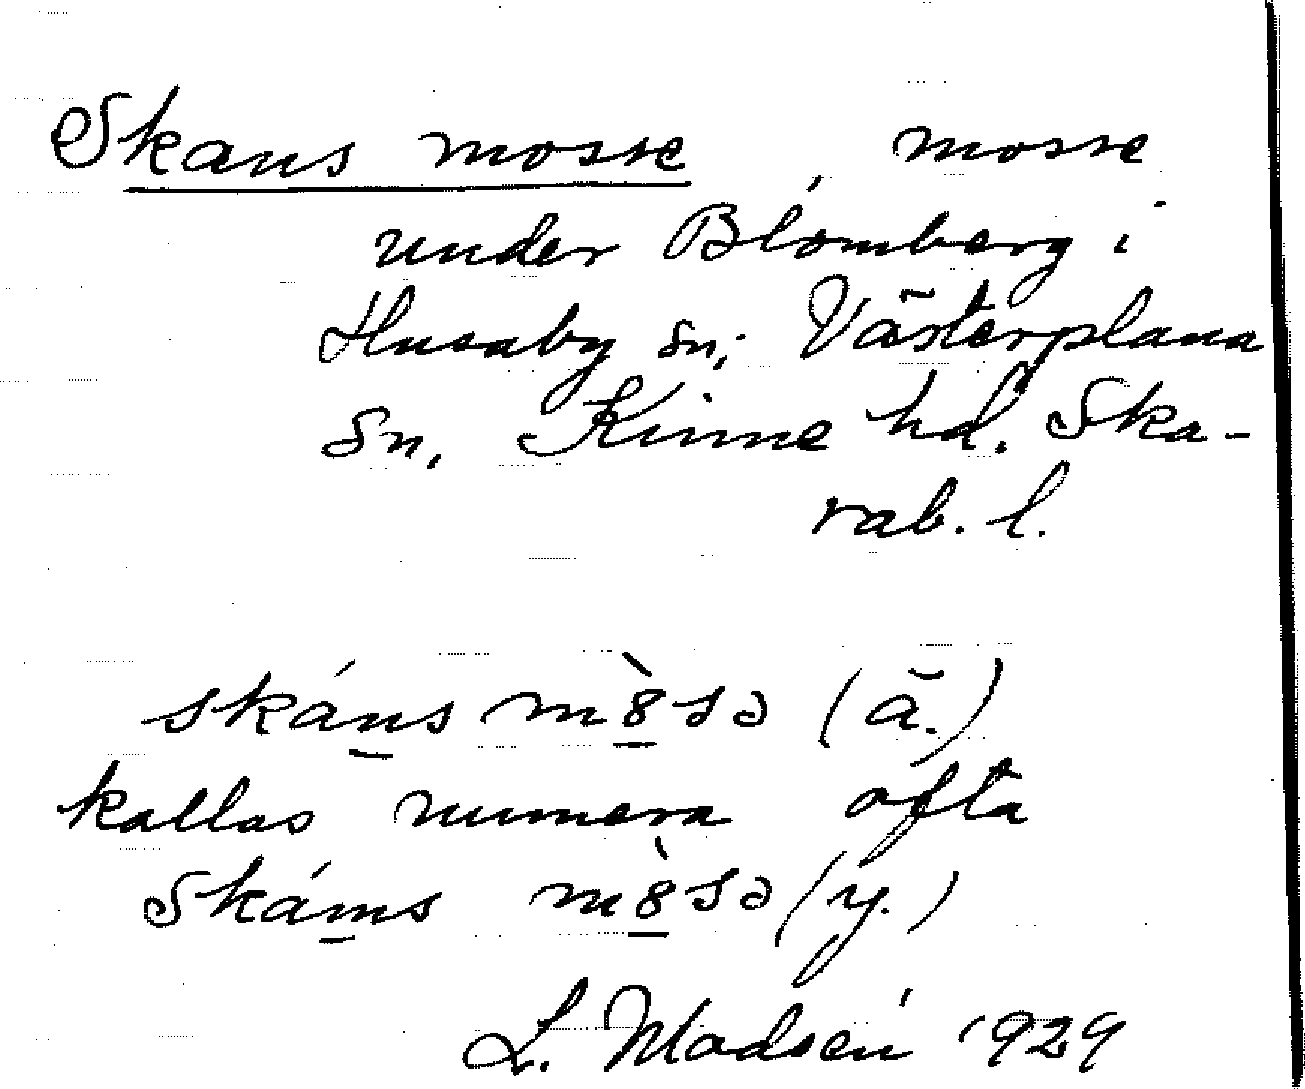 Skans mosse, mosse
under Blomberg i
Husaby sn, Västerplana
sn, Kinne hd. Ska-
rab. l.
skáns mò̱8sə (ä.)
kallas numera ofta
skáms mò̱8sə (y.)
L. Modsén 1929